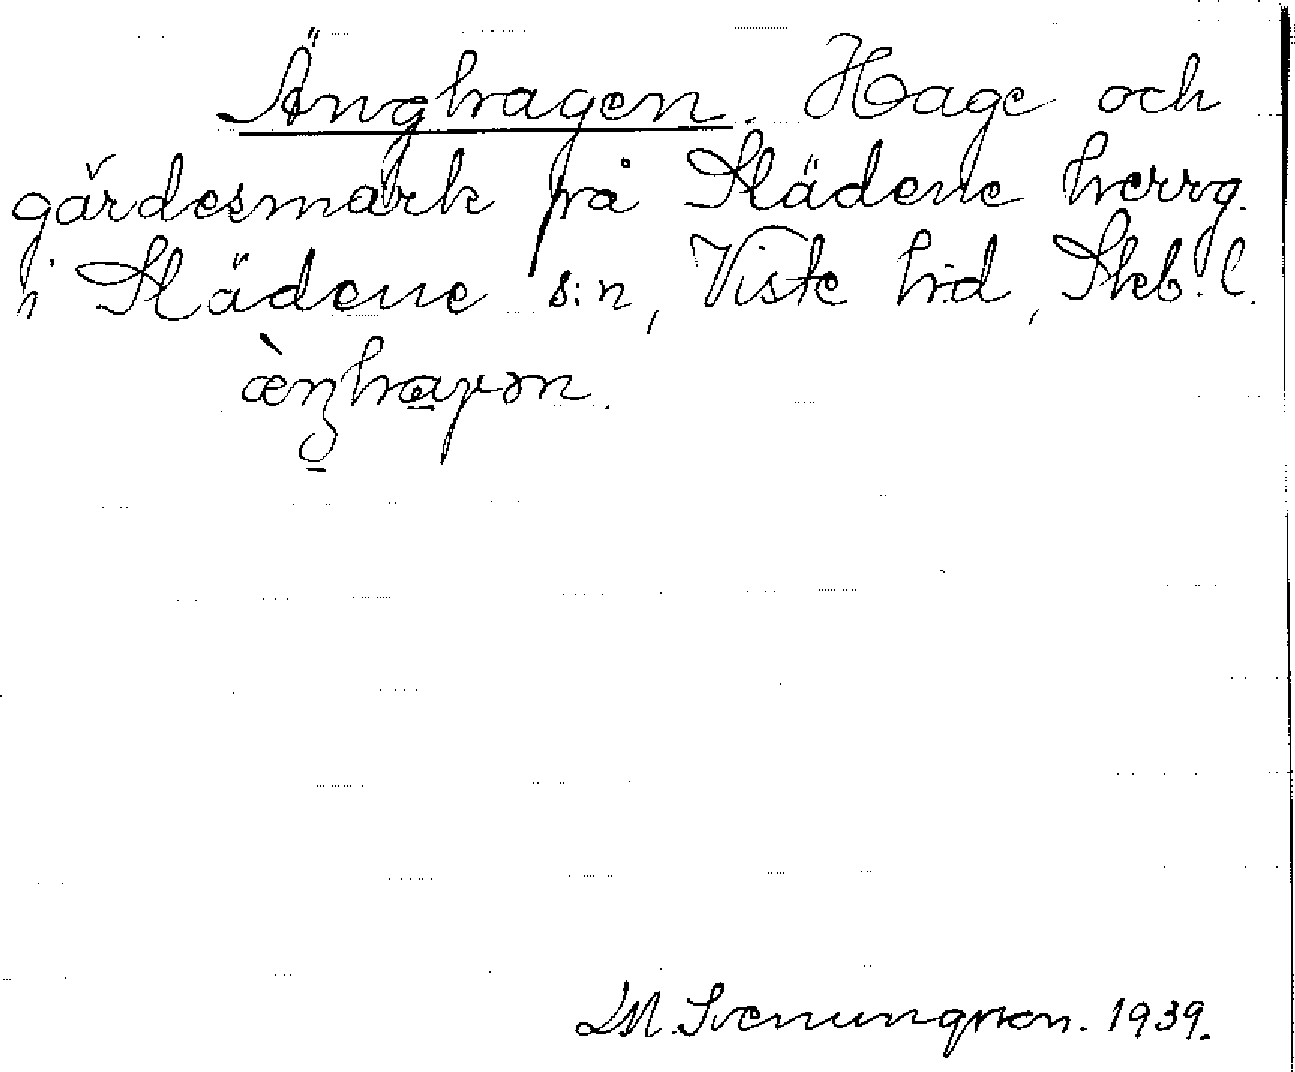 Änghagen. Hage och
gärdesmark på Slädene herrg.
i Slädene s:n, Viste hd, Skb. l.
æ̀ŋhaγən.
LM Svenungsson. 1939.